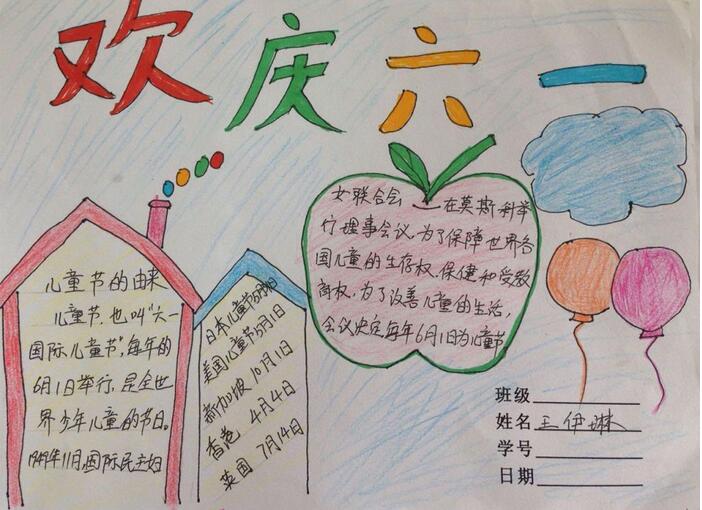 欢庆六一
儿童节的由来
儿童节,也叫“六一
国际儿童节”,每年的
6月1日举行,是全世
界少年儿童的节日。
1949年11月,国际民主妇
日本儿童节5月5日
美国儿童节5月1日
新加坡 10月1日
香港 4月4日
英国 7月14日
女联合会 在莫斯科举
行理事会议,为了保障世界各
国儿童的生存权、保健和受教
育权,为了改善儿童的生活,
会议决定每年6月1日为儿童节
班级
姓名 王伊琳
学号
日期